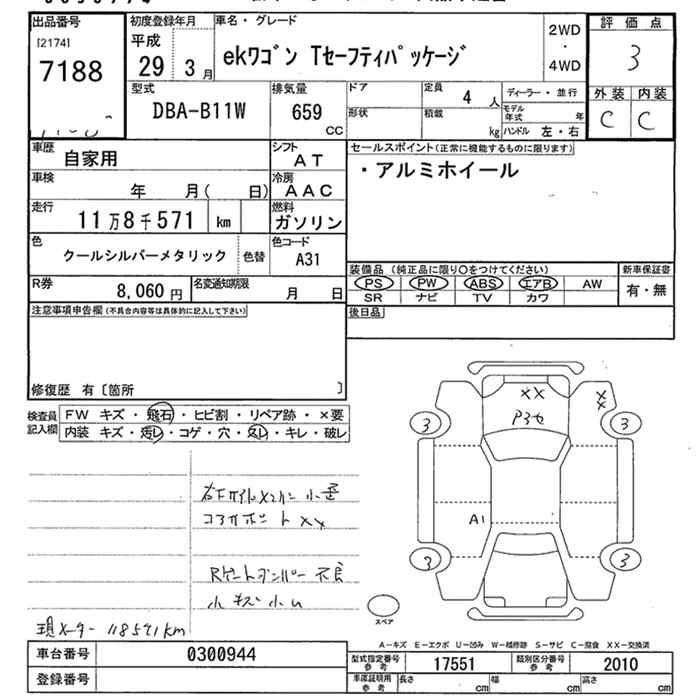 出品番号
[2174]
7188
初度登録年月
平成
29 3月
車名・グレード
ekワゴン Tセーフティパッケージ
2WD
・
4WD
評価点
3
外装 内装
C C
型式
DBA-B11W
排気量
659
CC
ドア
形状
定員
4 人
積載
kg
ディーラー・並行
モデル年式 年
ハンドル 左・右
車歴 自家用
シフト
AT
車検 年 月( 日)
冷房
AAC
走行 11万8千571 km
燃料
ガソリン
色
クールシルバーメタリック 色替
色コード
A31
R券 8,060円
名変通知期限 月 日
セールスポイント(正常に機能するものに限ります)
・アルミホイール
装備品 (純正品に限り○をつけてください)
PS PW ABS エアB AW
SR ナビ TV カワ
新車保証書
有・無
後日品
注意事項申告欄(不具合内容等は具体的に記入して下さい)
修復歴 有〔箇所 〕
検査員
記入欄
FW キズ・飛石・ヒビ割・リペア跡・×要
内装 キズ・汚レ・コゲ・穴・スレ・キレ・破レ
小キズ小凹
現メーター 118571km
XX
XX
3
3
A1
3
3
スペア
A-キズ E-エクボ U-凹み W-補修跡 S-サビ C-腐食 XX-交換済
車台番号 0300944
登録番号
型式指定番号
参考
17551
類別区分番号
参考
2010
車庫証明用
参考
長さ cm 幅 cm 高さ cm